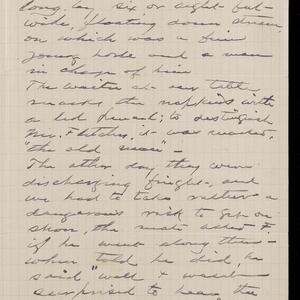 long, by six or eight feet
wide, floating down stream,
on which was a fine
young horse and a man
in charge of him
The waiter at our table
marks the napkins with
a led pencil; to distinguish
Mr. Fletcher, it was marked,
"the old man" -
The other day they were
discharging freight, and
we had to take rather a
dangerous risk to get on
shore, the mate asked F.
if he went along there -
when told he did, he
said "well I wasn't
surprised to hear the